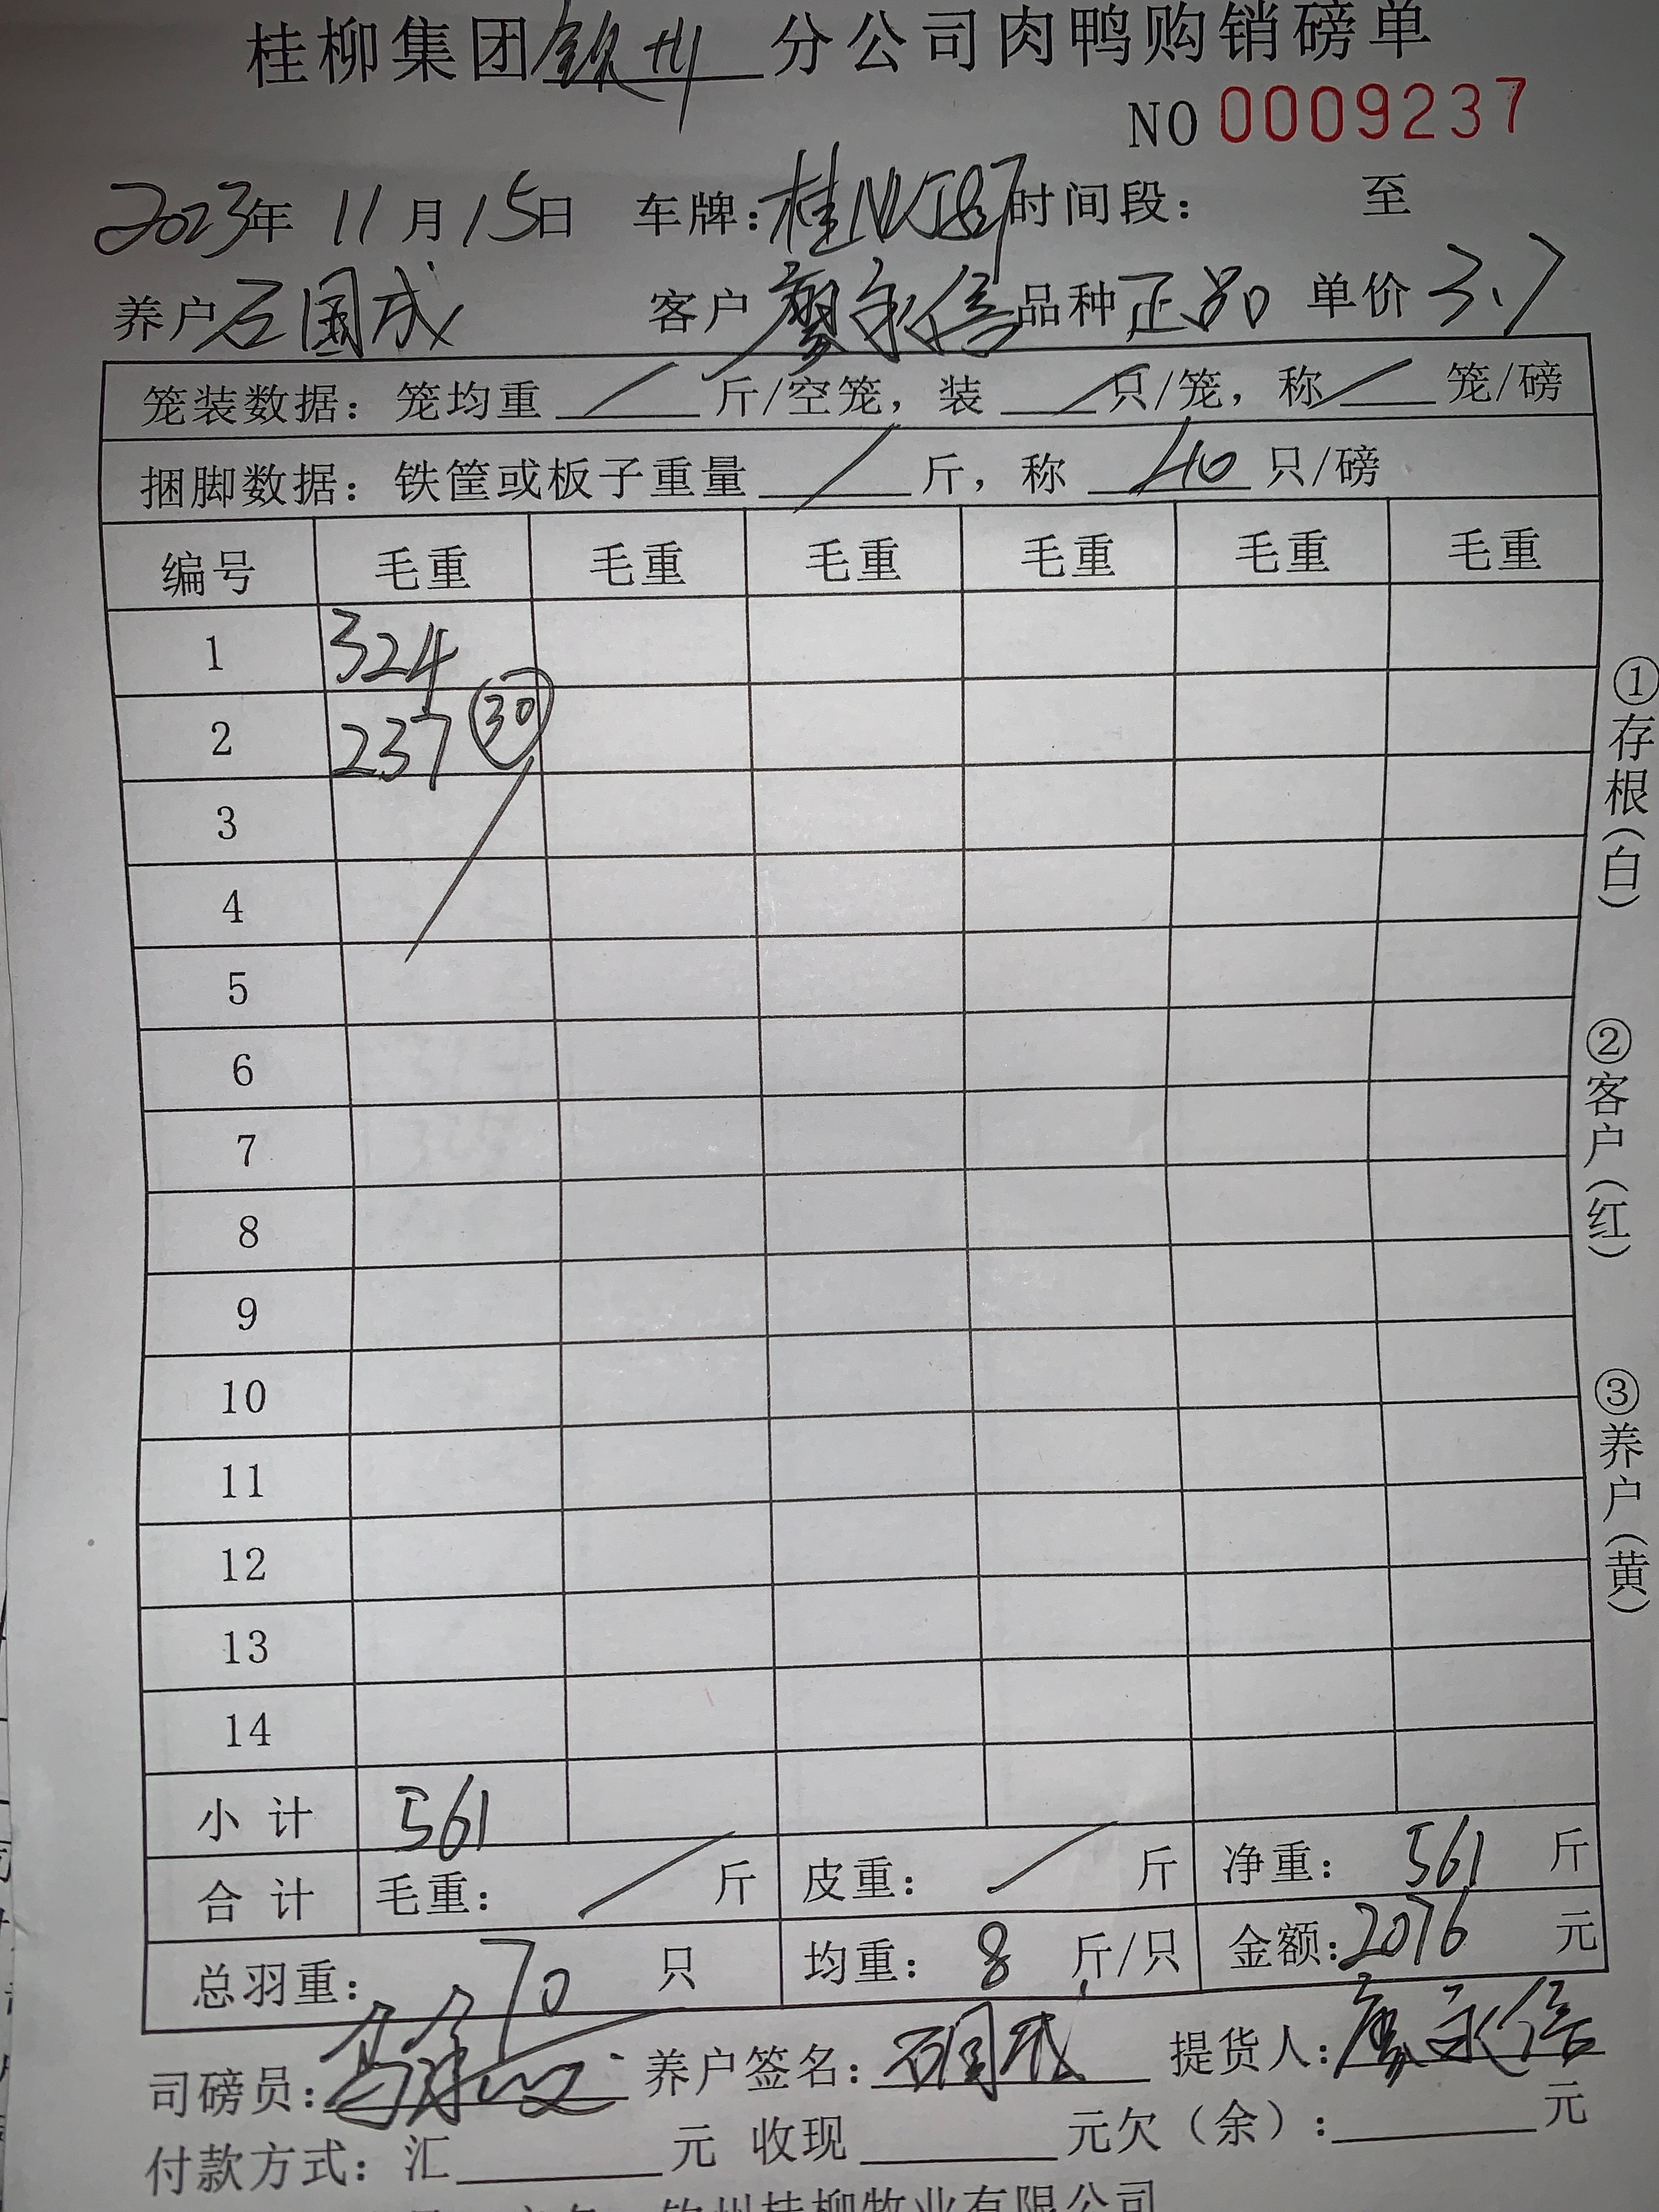 桂柳集团钦州分公司肉鸭购销磅单
NO 0009237
2023年 11月15日 车牌:桂 时间段: 至
养户石国成 客户廖永信 品种正品 单价3.7
笼装数据: 笼均重 / 斤/空笼, 装 / 只/笼, 称 / 笼/磅
捆脚数据: 铁筐或板子重量 / 斤, 称 40 只/磅
编号 毛重 毛重 毛重 毛重 毛重 毛重
1 324
2 237 30
3
4
5
6
7
8
9
10
11
12
13
14
小计 561
合计 毛重: / 斤 皮重: / 斤 净重: 561 斤
总羽重: 70 只 均重: 8 斤/只 金额:2076 元
司磅员: 养户签名:石国成 提货人:廖永信
付款方式: 汇 元 收现 元欠(余): 元
钦州桂柳牧业有限公司
①存根(白)
②客户(红)
③养户(黄)